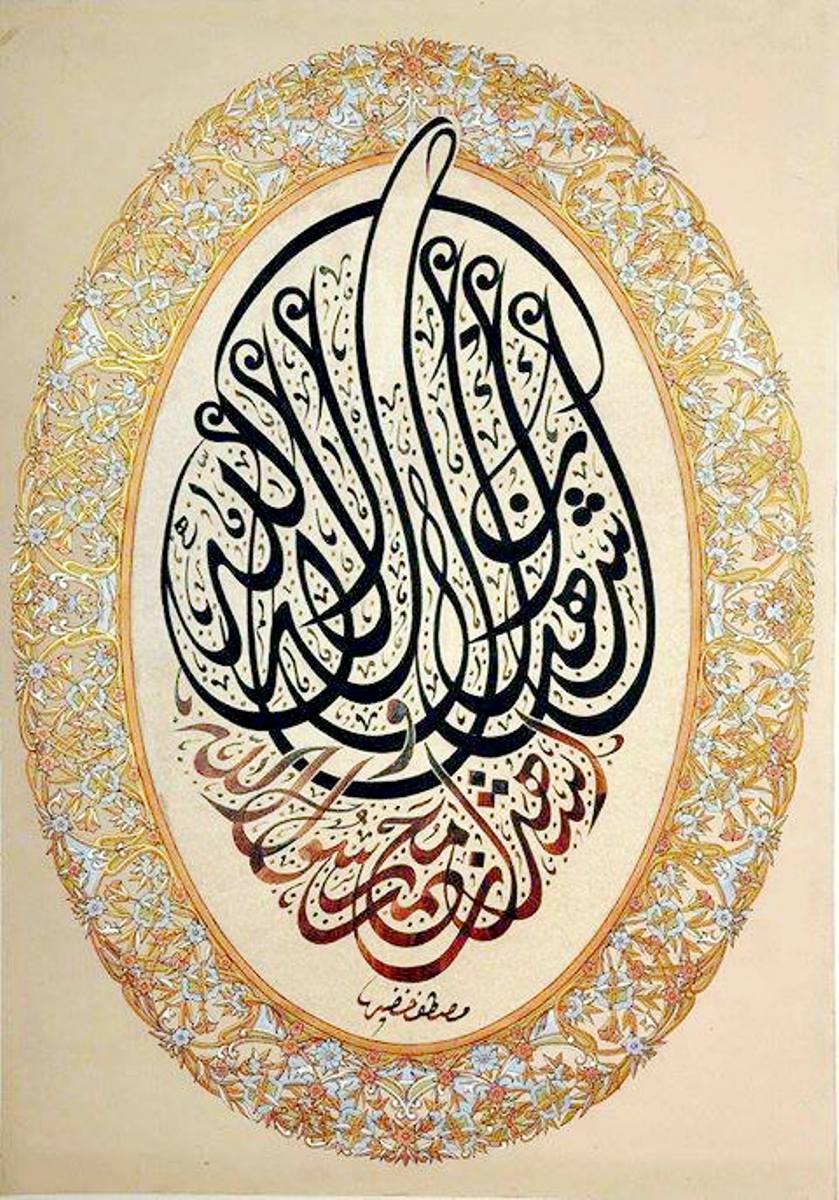 اشهد ان لا اله الا الله
و
اشهد ان محمدا رسول الله
مصطفى خضير